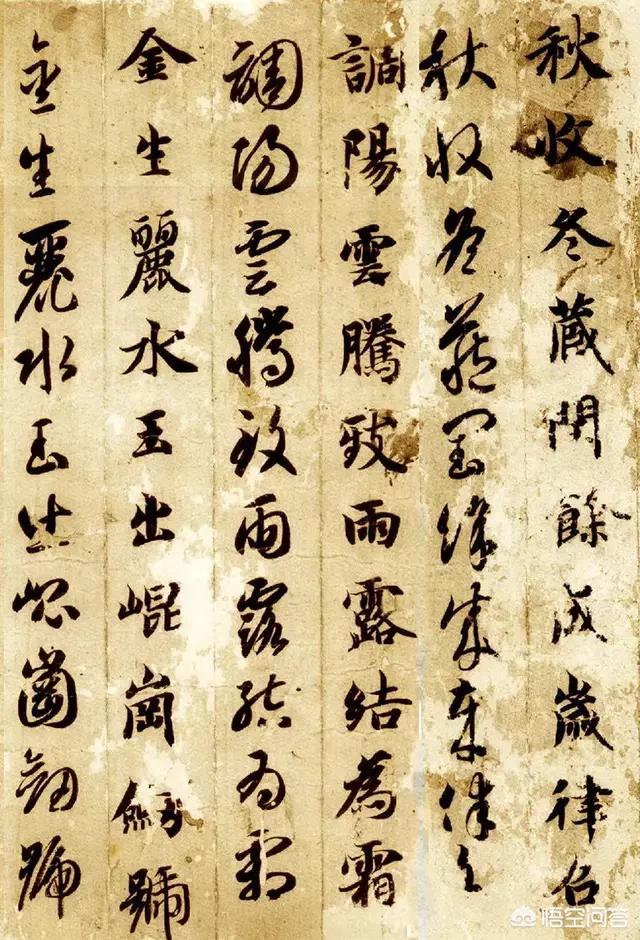 秋收冬藏閏餘成歲律召
秋收冬藏閏餘成歲律召
調陽雲騰致雨露結為霜
調陽雲騰致雨露結為霜
金生麗水玉出崐崗劒號
金生麗水玉出崐崗劒號
悟空问答